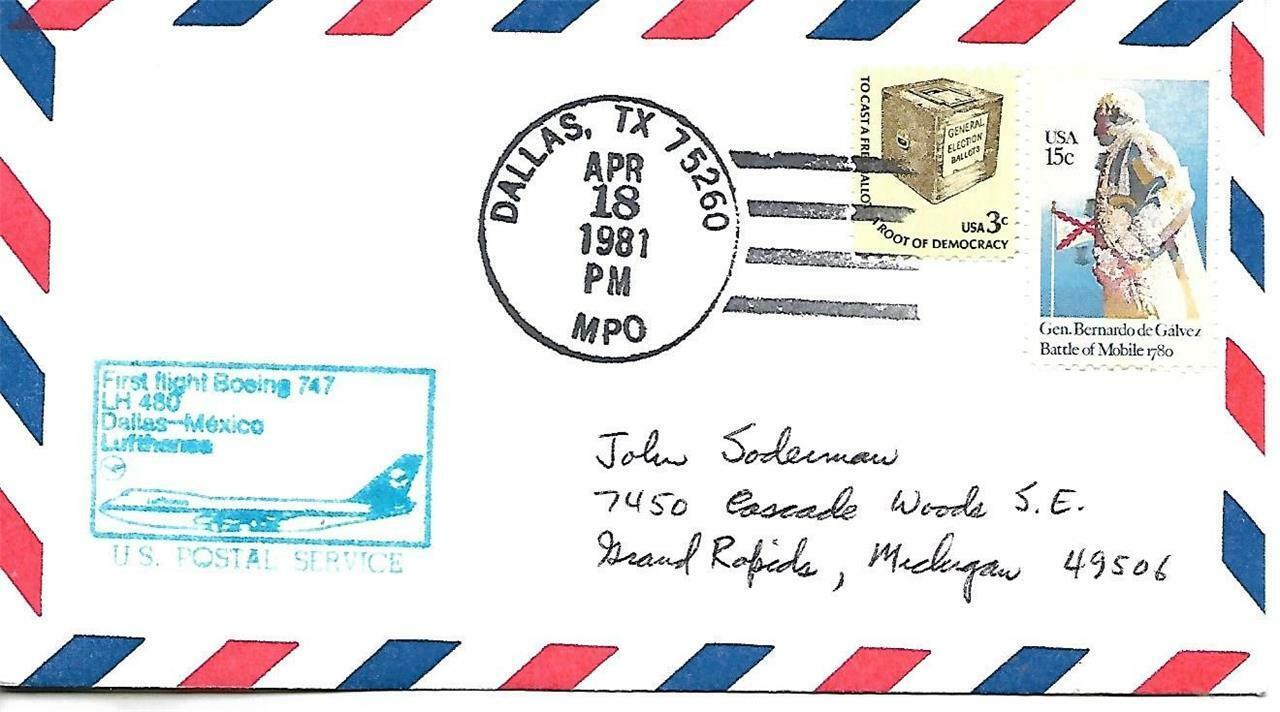 DALLAS, TX 75260
APR
18
1981
PM
MPO
TO CAST A FREE BALLOT A ROOT OF DEMOCRACY
GENERAL
ELECTION
BALLOTS
USA 3c
USA
15c
Gen. Bernardo de Gálvez
Battle of Mobile 1780
First flight Boeing 747
LH 480
Dallas-México
Lufthansa
Lufthansa
U.S. POSTAL SERVICE
John Soderman
7450 Cascade Woods S.E.
Grand Rapids, Michigan 49506